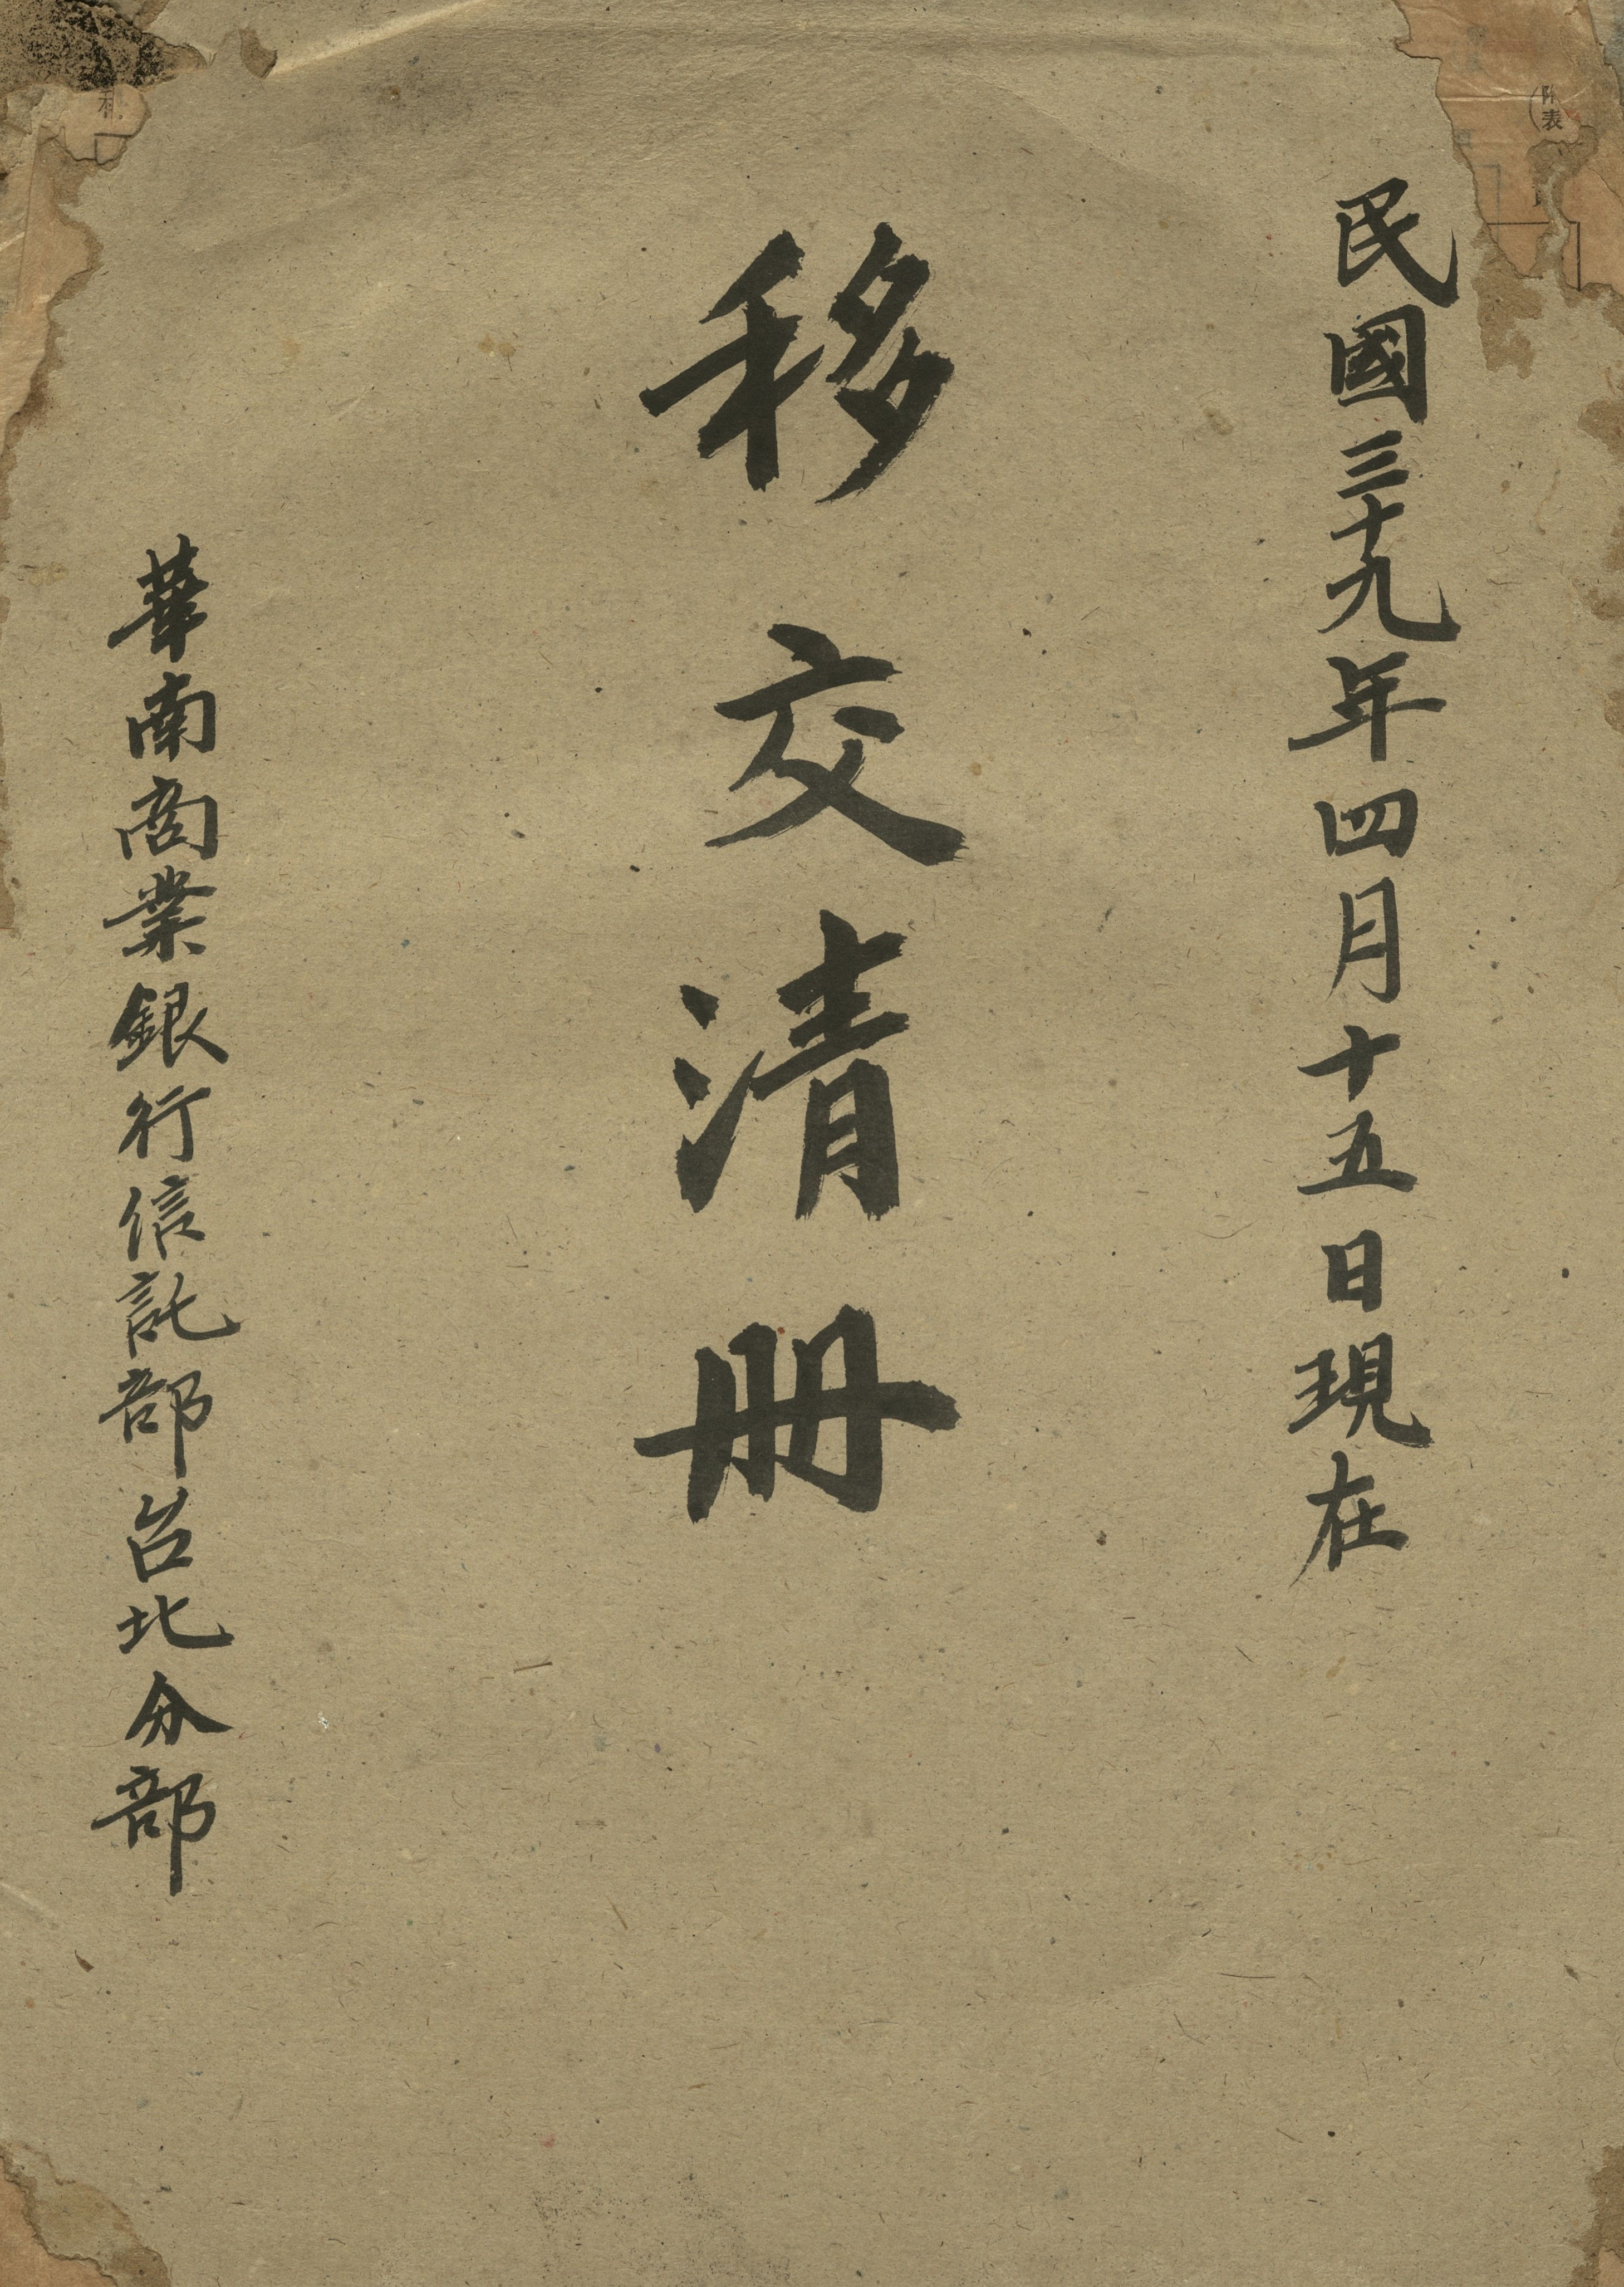 民國三十九年四月十五日現在
移交清册
華南商業銀行信託部台北分部
表